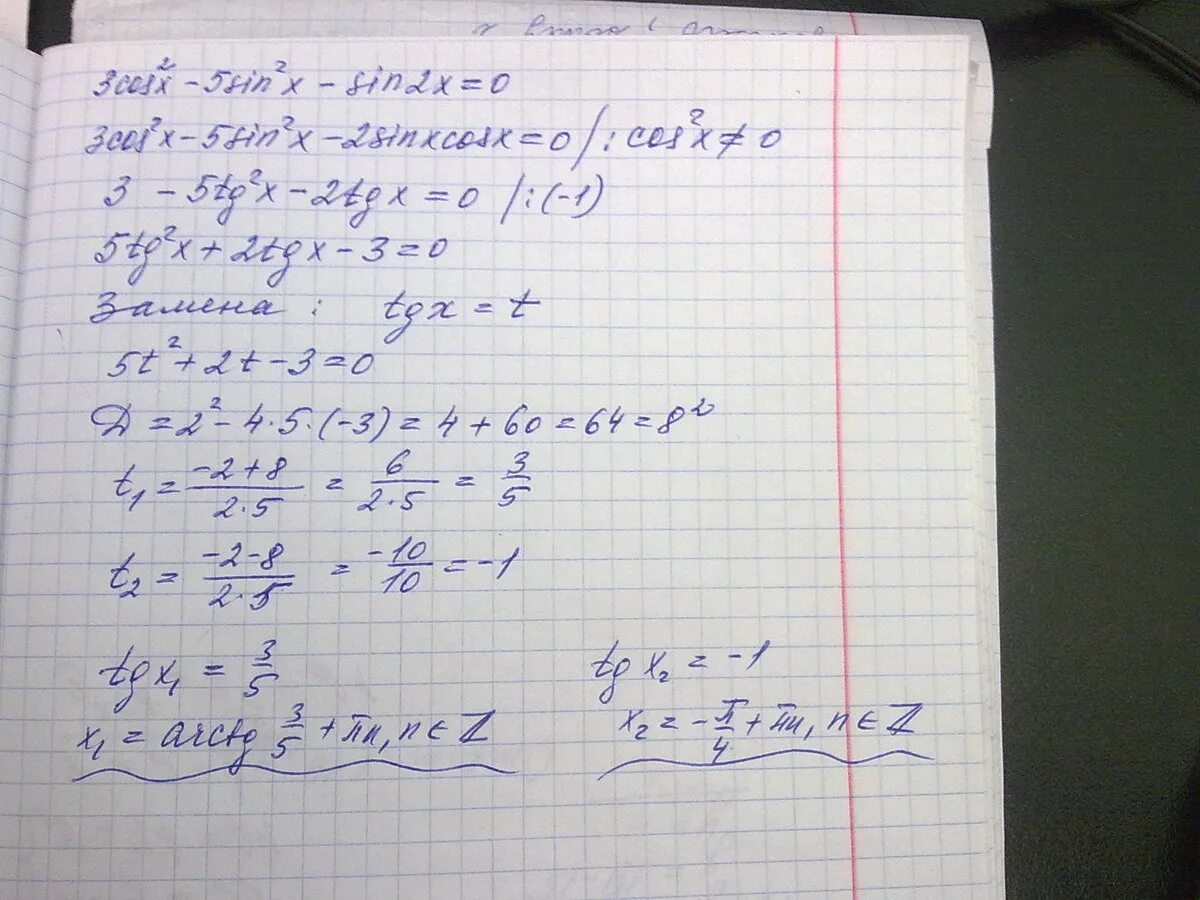 3cos²x - 5sin²x - sin2x = 0
3cos²x - 5sin²x - 2sinxcosx = 0 /: cos²x ≠ 0
3 - 5tg²x - 2tgx = 0 /:(-1)
5tg²x + 2tgx - 3 = 0
Замена: tgx = t
5t² + 2t - 3 = 0
Д = 2² - 4·5·(-3) = 4 + 60 = 64 = 8²
t₁ = (-2+8)/(2·5) = 6/(2·5) = 3/5
t₂ = (-2-8)/(2·5) = -10/10 = -1
tgx₁ = 3/5 tgx₂ = -1
x₁ = arctg 3/5 + πn, n∈Z x₂ = -π/4 + πn, n∈Z